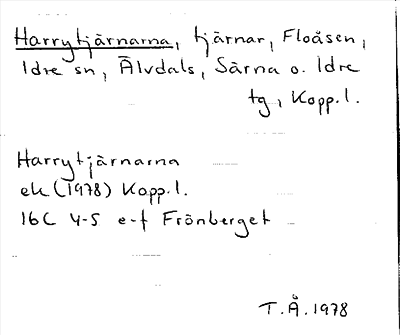 Harrytjärnarna, tjärnar, Floåsen,
Idre sn, Älvdals, Särna o. Idre
tg, Kopp.l.
Harrytjärnarna
ek (1978) Kopp.l.
16C 4-5 e-f Frönberget
T.Å.1978